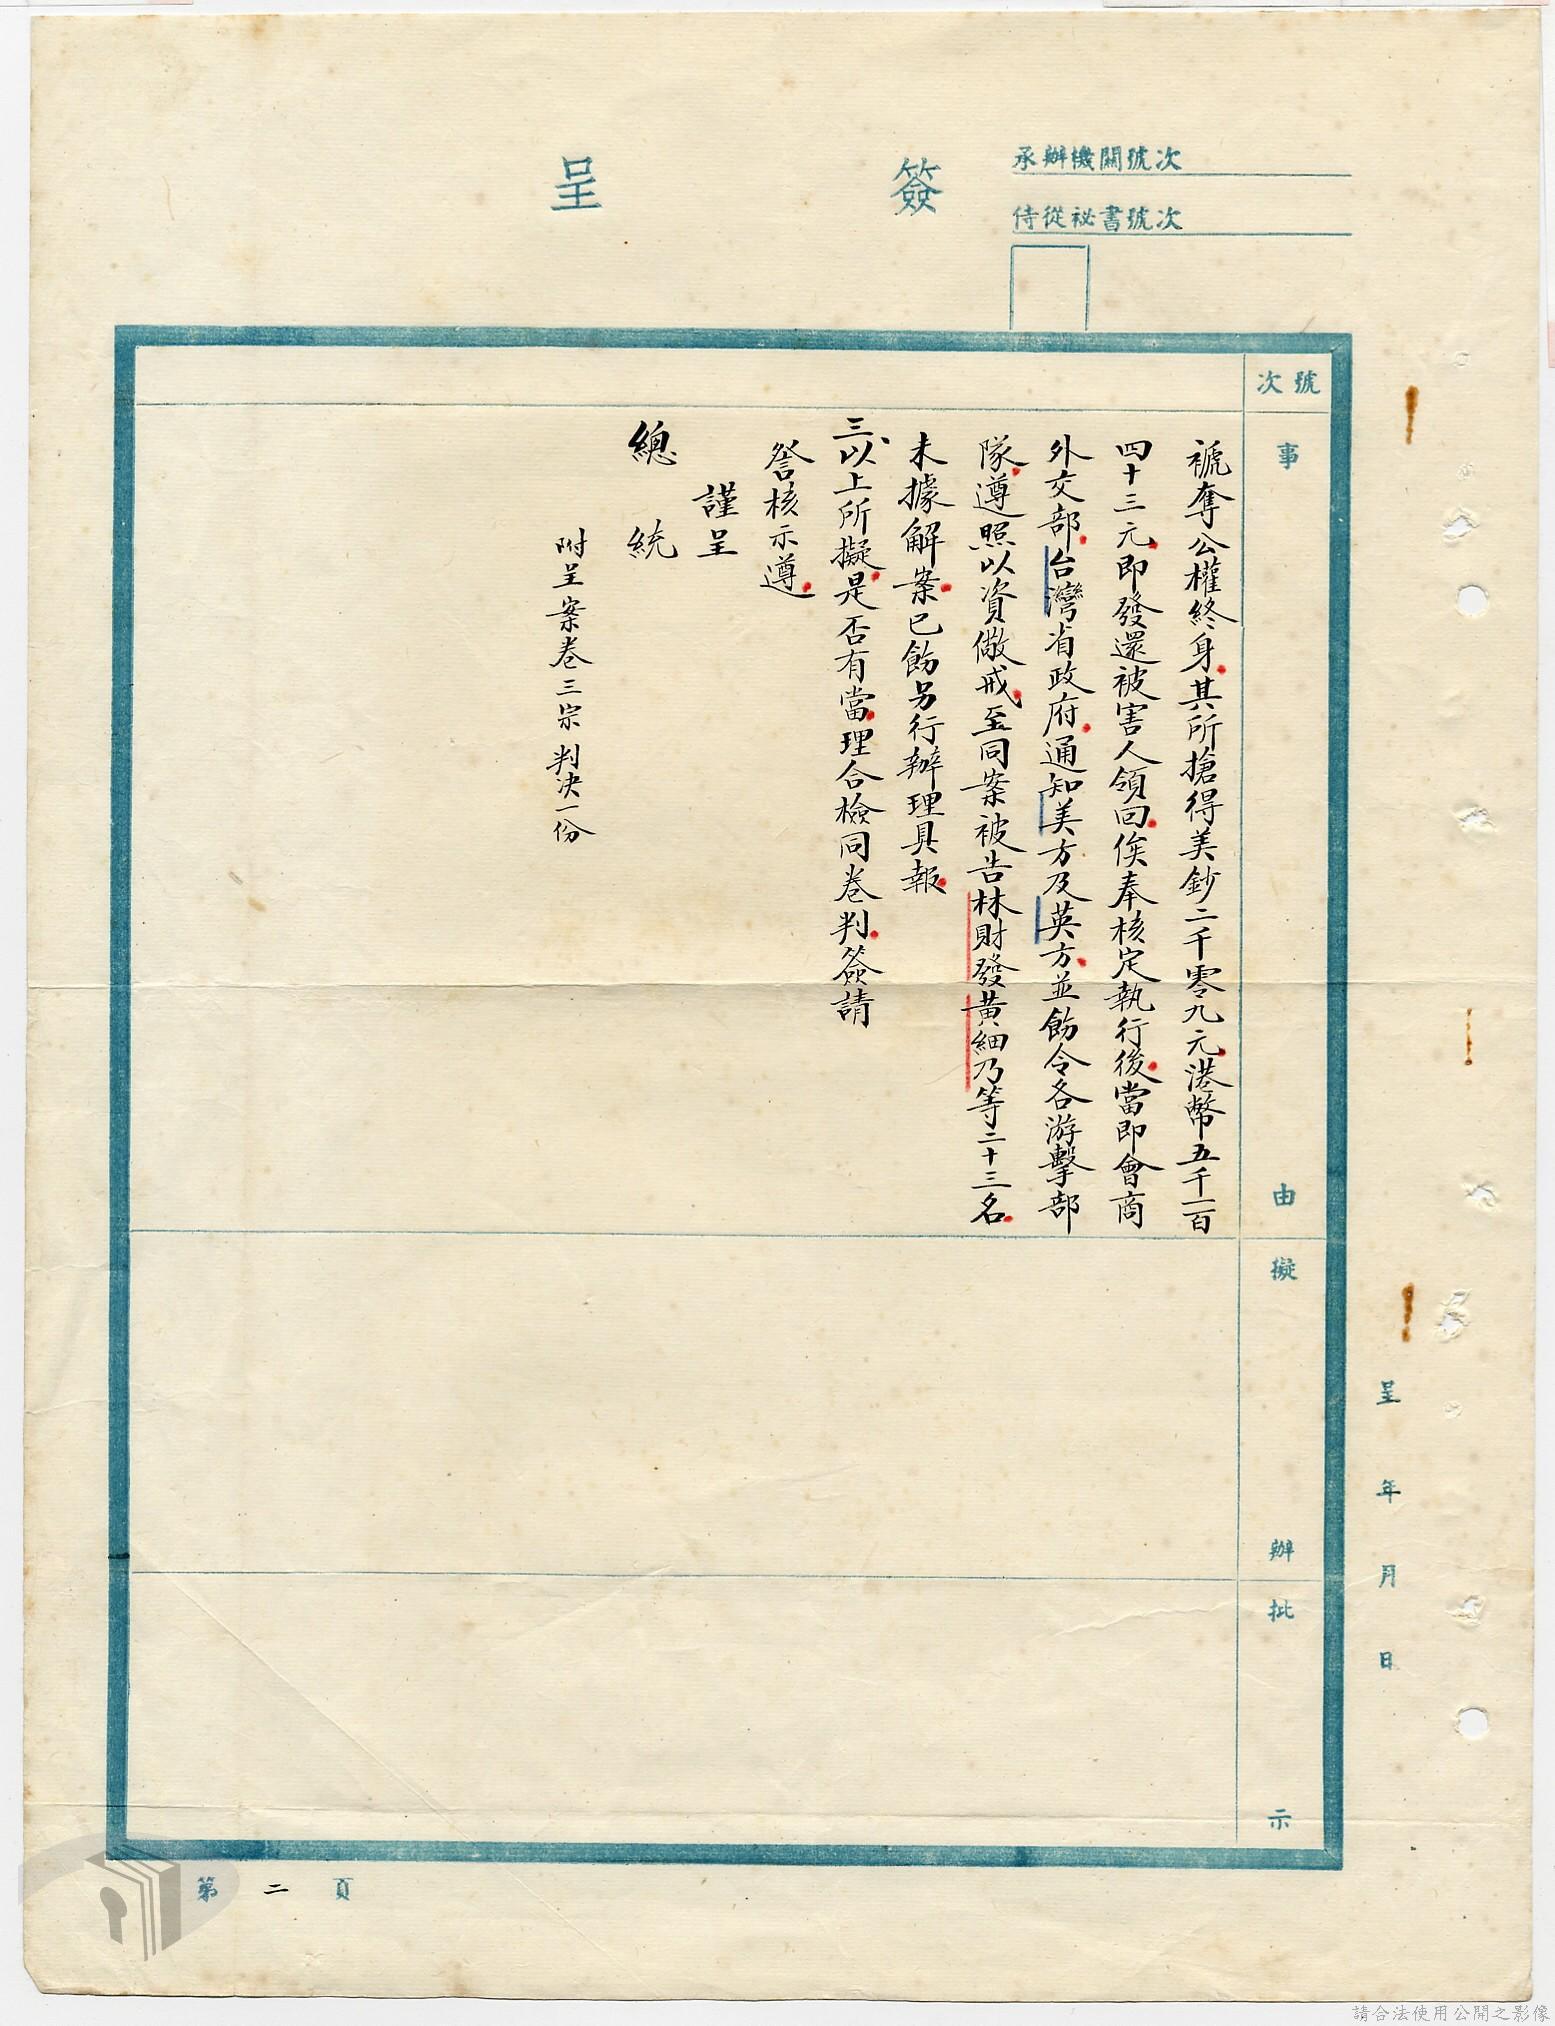 簽呈
承辦機關號次
侍從祕書號次
呈 年 月 日
號次
事由
擬辦
批示
褫奪公權終身其所搶得美鈔二千零九元港幣五千一百
四十三元即發還被害人領回俟奉核定執行後當即會商
外交部台灣省政府通知美方及英方並飭令各游擊部
隊遵照以資儆戒至同案被告林財發黃細乃等二十三名
未據解案已飭另行辦理具報
三、以上所擬是否有當理合檢同卷判簽請
詧核示遵
謹呈
總統
附呈案卷三宗判決一份
第二頁
請合法使用公開之影像